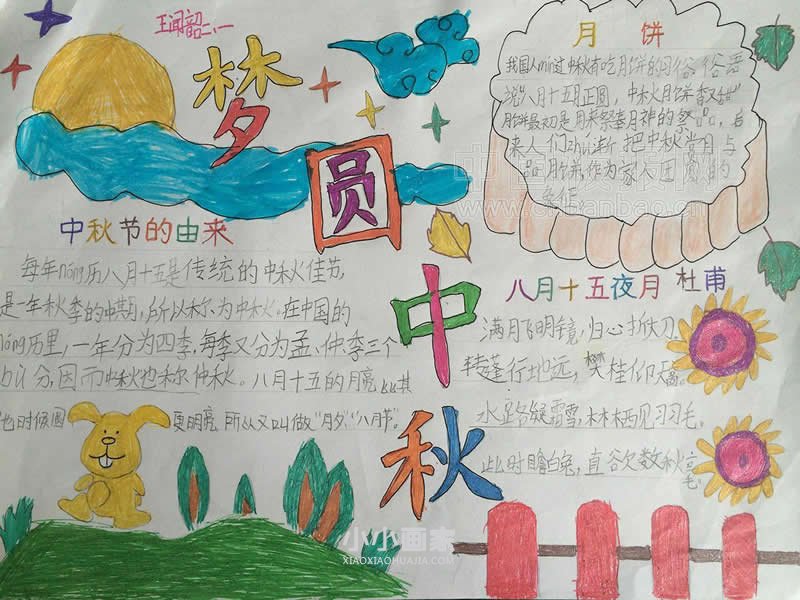 王闻韶二、一
梦
圆
中
秋
中秋节的由来
每年nóng历八月十五是传统的中秋佳节,
是一年秋季的中期,所以称为中秋。在中国的
nóng历里,一年分为四季,每季又分为孟、仲、季三个
bù分,因而中秋也称仲秋。八月十五的月亮比其
他时候圆
更明亮,所以又叫做“月夕”“八月节”。
月饼
我国人mín过中秋有吃月饼的习俗,俗语
说“八月十五月正圆,中秋月饼香又甜”
月饼最初是用来祭奉月神的祭品,后
来人们逐渐把中秋赏月与
品月饼,作为家人团圆的
象征。
八月十五夜月 杜甫
满月飞明镜,归心折大刀。
转蓬行地远,攀桂仰天高。
水路疑霜雪,林栖见羽毛。
此时瞻白兔,直欲数秋毫。
www.chuanbao.cn
小小画家
XIAOXIAOHUAJIA.COM